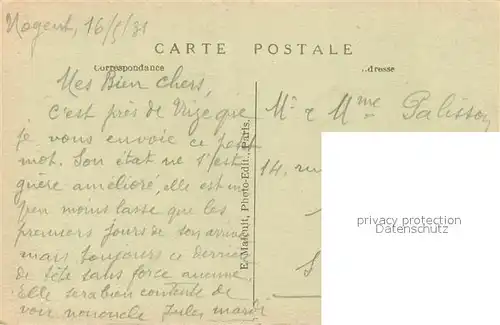 Nogent, 16/5/31
CARTE POSTALE
Correspondance
Adresse
Mes Bien chers,
C'est près de que
je vous envoie ce petit
mot. Son état ne s'est
guère amélioré, elle est un
peu moins lasse que les
premiers jours de son arrivée
mais toujours ce derrière
de tête sans force aucune.
Elle sera bien contente de
voir Jules mardi
E. Mateuit, Photo-Edit., Paris.
Mr & Mme Palisson
14, ru
privacy protection
Datenschutz